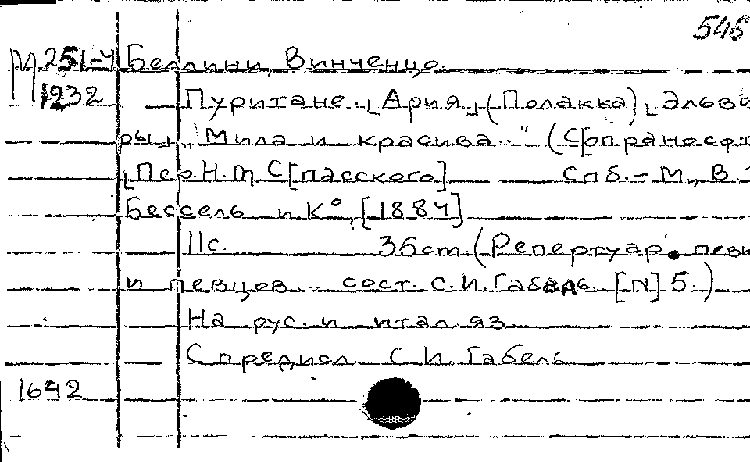 545
М 251-4 Беллини, Винченцо.
1232 Пуритане. [Ария] (Полакка) [Эльви
ры] "Мила и красива..." (С[опрано с фп
[Пер. Н.М. С[пасского] Спб. - М., В.
Бессель и К°, [1884]
11с. 35cm (Репертуар певи
и певцов... сост. С.И. Габель [N] 5.)
На рус. и итал. яз.
С предисл. С.И. Габель
1642